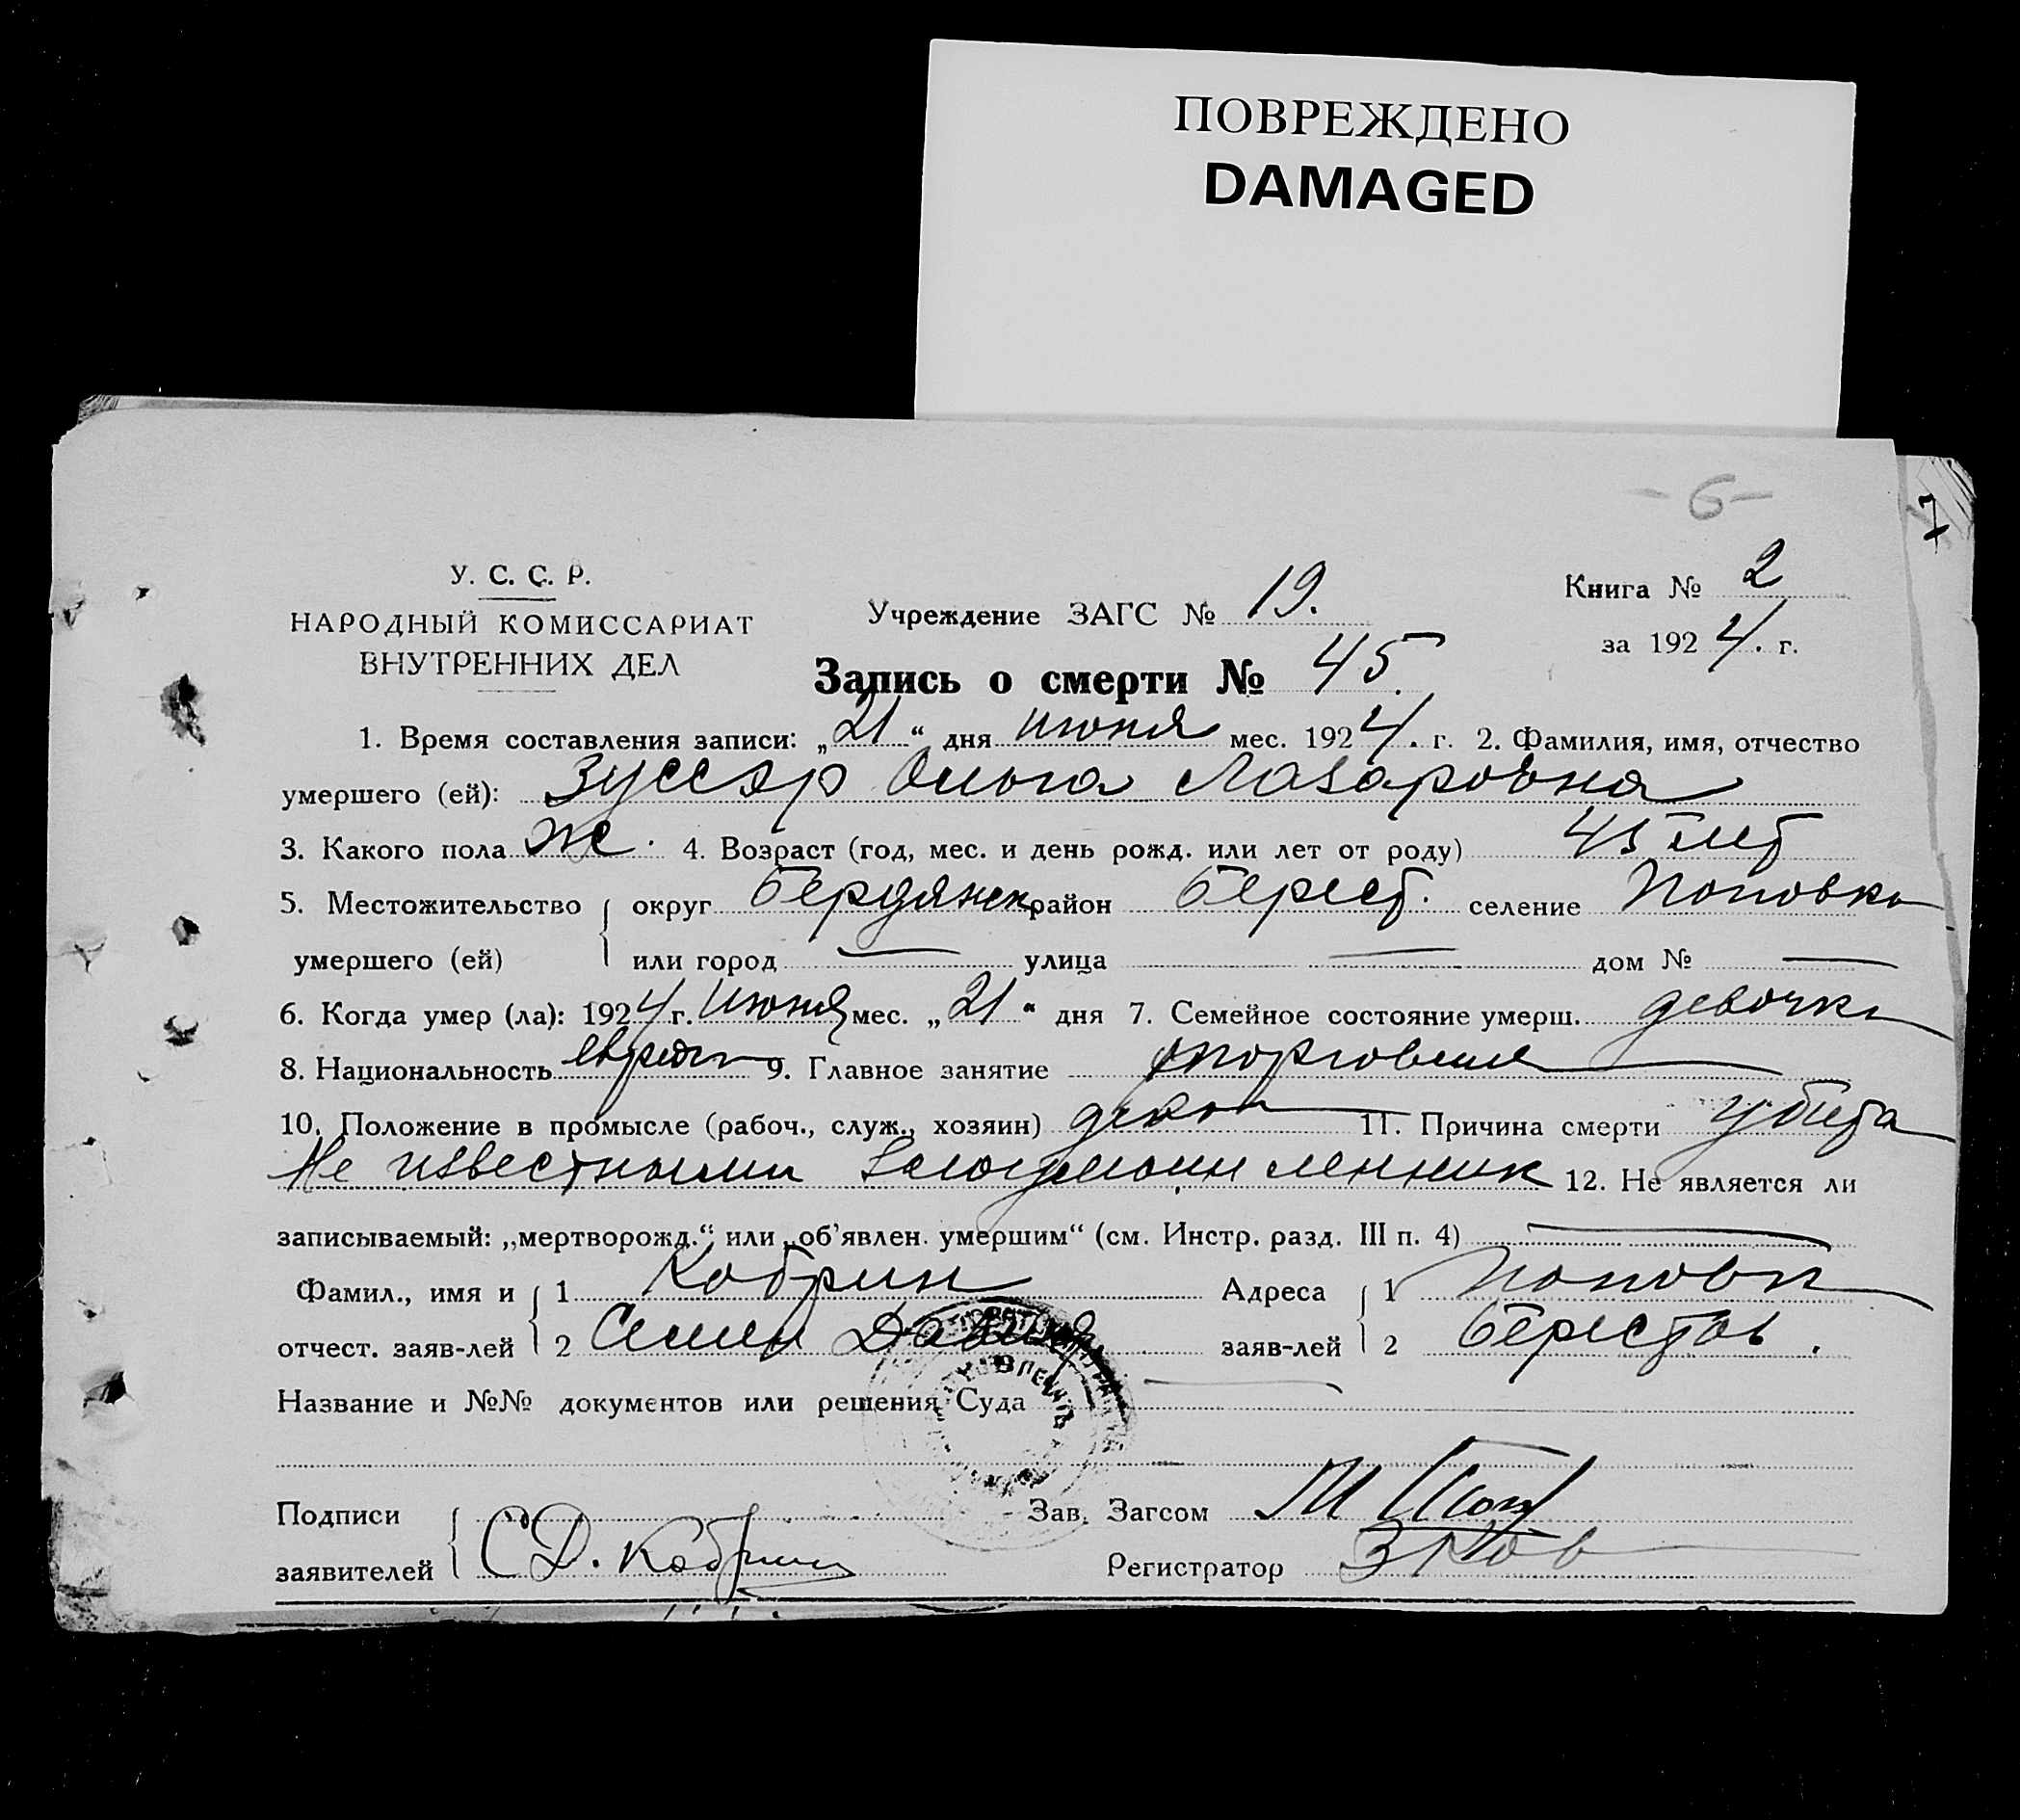 ПОВРЕЖДЕНО
DAMAGED
- 6 -
7
У. С. С. Р.
НАРОДНЫЙ КОМИССАРИАТ
ВНУТРЕННИХ ДЕЛ
Учреждение ЗАГС № 19.
Книга № 2
за 1924. г.
Запись о смерти № 45.
1. Время составления записи: „21“ дня июня мес. 1924. г. 2. Фамилия, имя, отчество
умершего (ей): Зуссэр Ольга Лазаровна
3. Какого пола ж. 4. Возраст (год, мес. и день рожд. или лет от роду) 45 лет
5. Местожительство округ Бердянск район Берест. селение Поповка
умершего (ей) или город — улица — дом № —
6. Когда умер (ла): 1924 г. июня мес. „21“ дня 7. Семейное состояние умерш. девочка
8. Национальность еврейк 9. Главное занятие торговля
10. Положение в промысле (рабоч., служ., хозяин) 11. Причина смерти убита
Не известными 12. Не является ли
записываемый: „мертворожд.“ или „об'явлен. умершим“ (см. Инстр. разд. III п. 4) —
Фамил., имя и 1 Кобрин Адреса 1 Поповк
отчест. заяв-лей 2 Семен заяв-лей 2 Берестов.
Название и №№ документов или решения Суда —
Подписи Зав. Загсом
заявителей С Д. Кобрин Регистратор